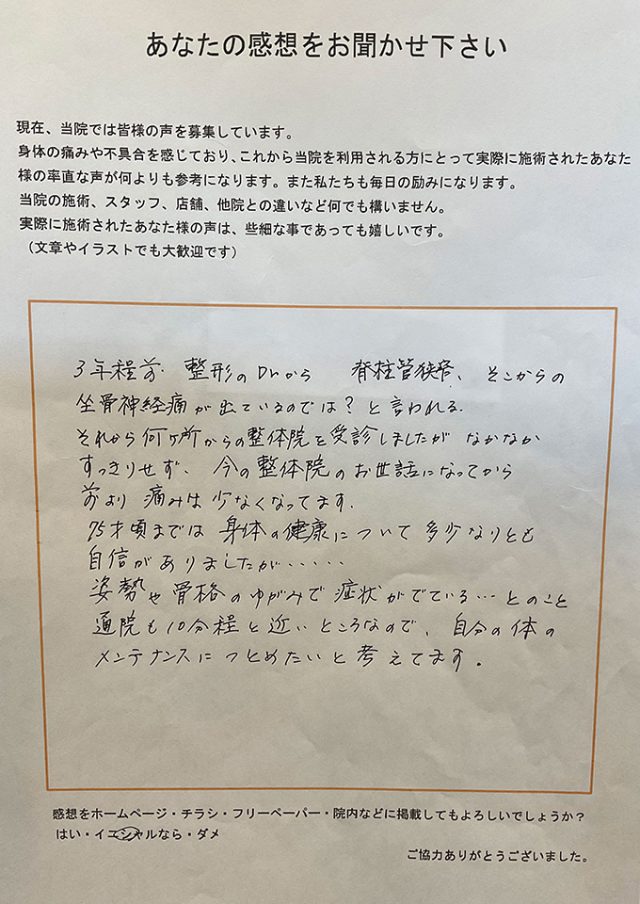 あなたの感想をお聞かせ下さい
現在、当院では皆様の声を募集しています。
身体の痛みや不具合を感じており、これから当院を利用される方にとって実際に施術されたあなた
様の率直な声が何よりも参考になります。また私たちも毎日の励みになります。
当院の施術、スタッフ、店舗、他院との違いなど何でも構いません。
実際に施術されたあなた様の声は、些細な事であっても嬉しいです。
（文章やイラストでも大歓迎です）
3年程前 整形のDrから 脊柱管狭窄、そこからの
坐骨神経痛が出ているのでは？と言われる.
それから何ヶ所からの整体院を受診しましたが なかなか
すっきりせず、今の整体院のお世話になってから
前より 痛みは少なくなってます.
75才頃までは 身体の健康について 多少なりとも
自信がありましたが‥‥‥
姿勢や骨格のゆがみで 症状がでている…とのこと
通院も10分程と近いところなので、自分の体の
メンテナンスにつとめたいと考えてます。
感想をホームページ・チラシ・フリーペーパー・院内などに掲載してもよろしいでしょうか？
はい・イニシャルなら・ダメ
ご協力ありがとうございました。